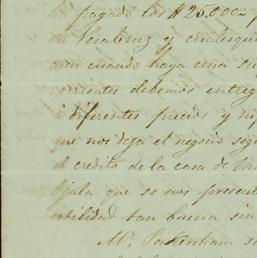 pagado los $25.000-
en Veracruz y cualesqui
aun cuando haya una su
corrientes debemos entreg
à diferentes precios y
que nos deja el negocio seg
el credito de la casa de
Ojala que se nos present
utilidad tan buena sin
Mr. Pakenham